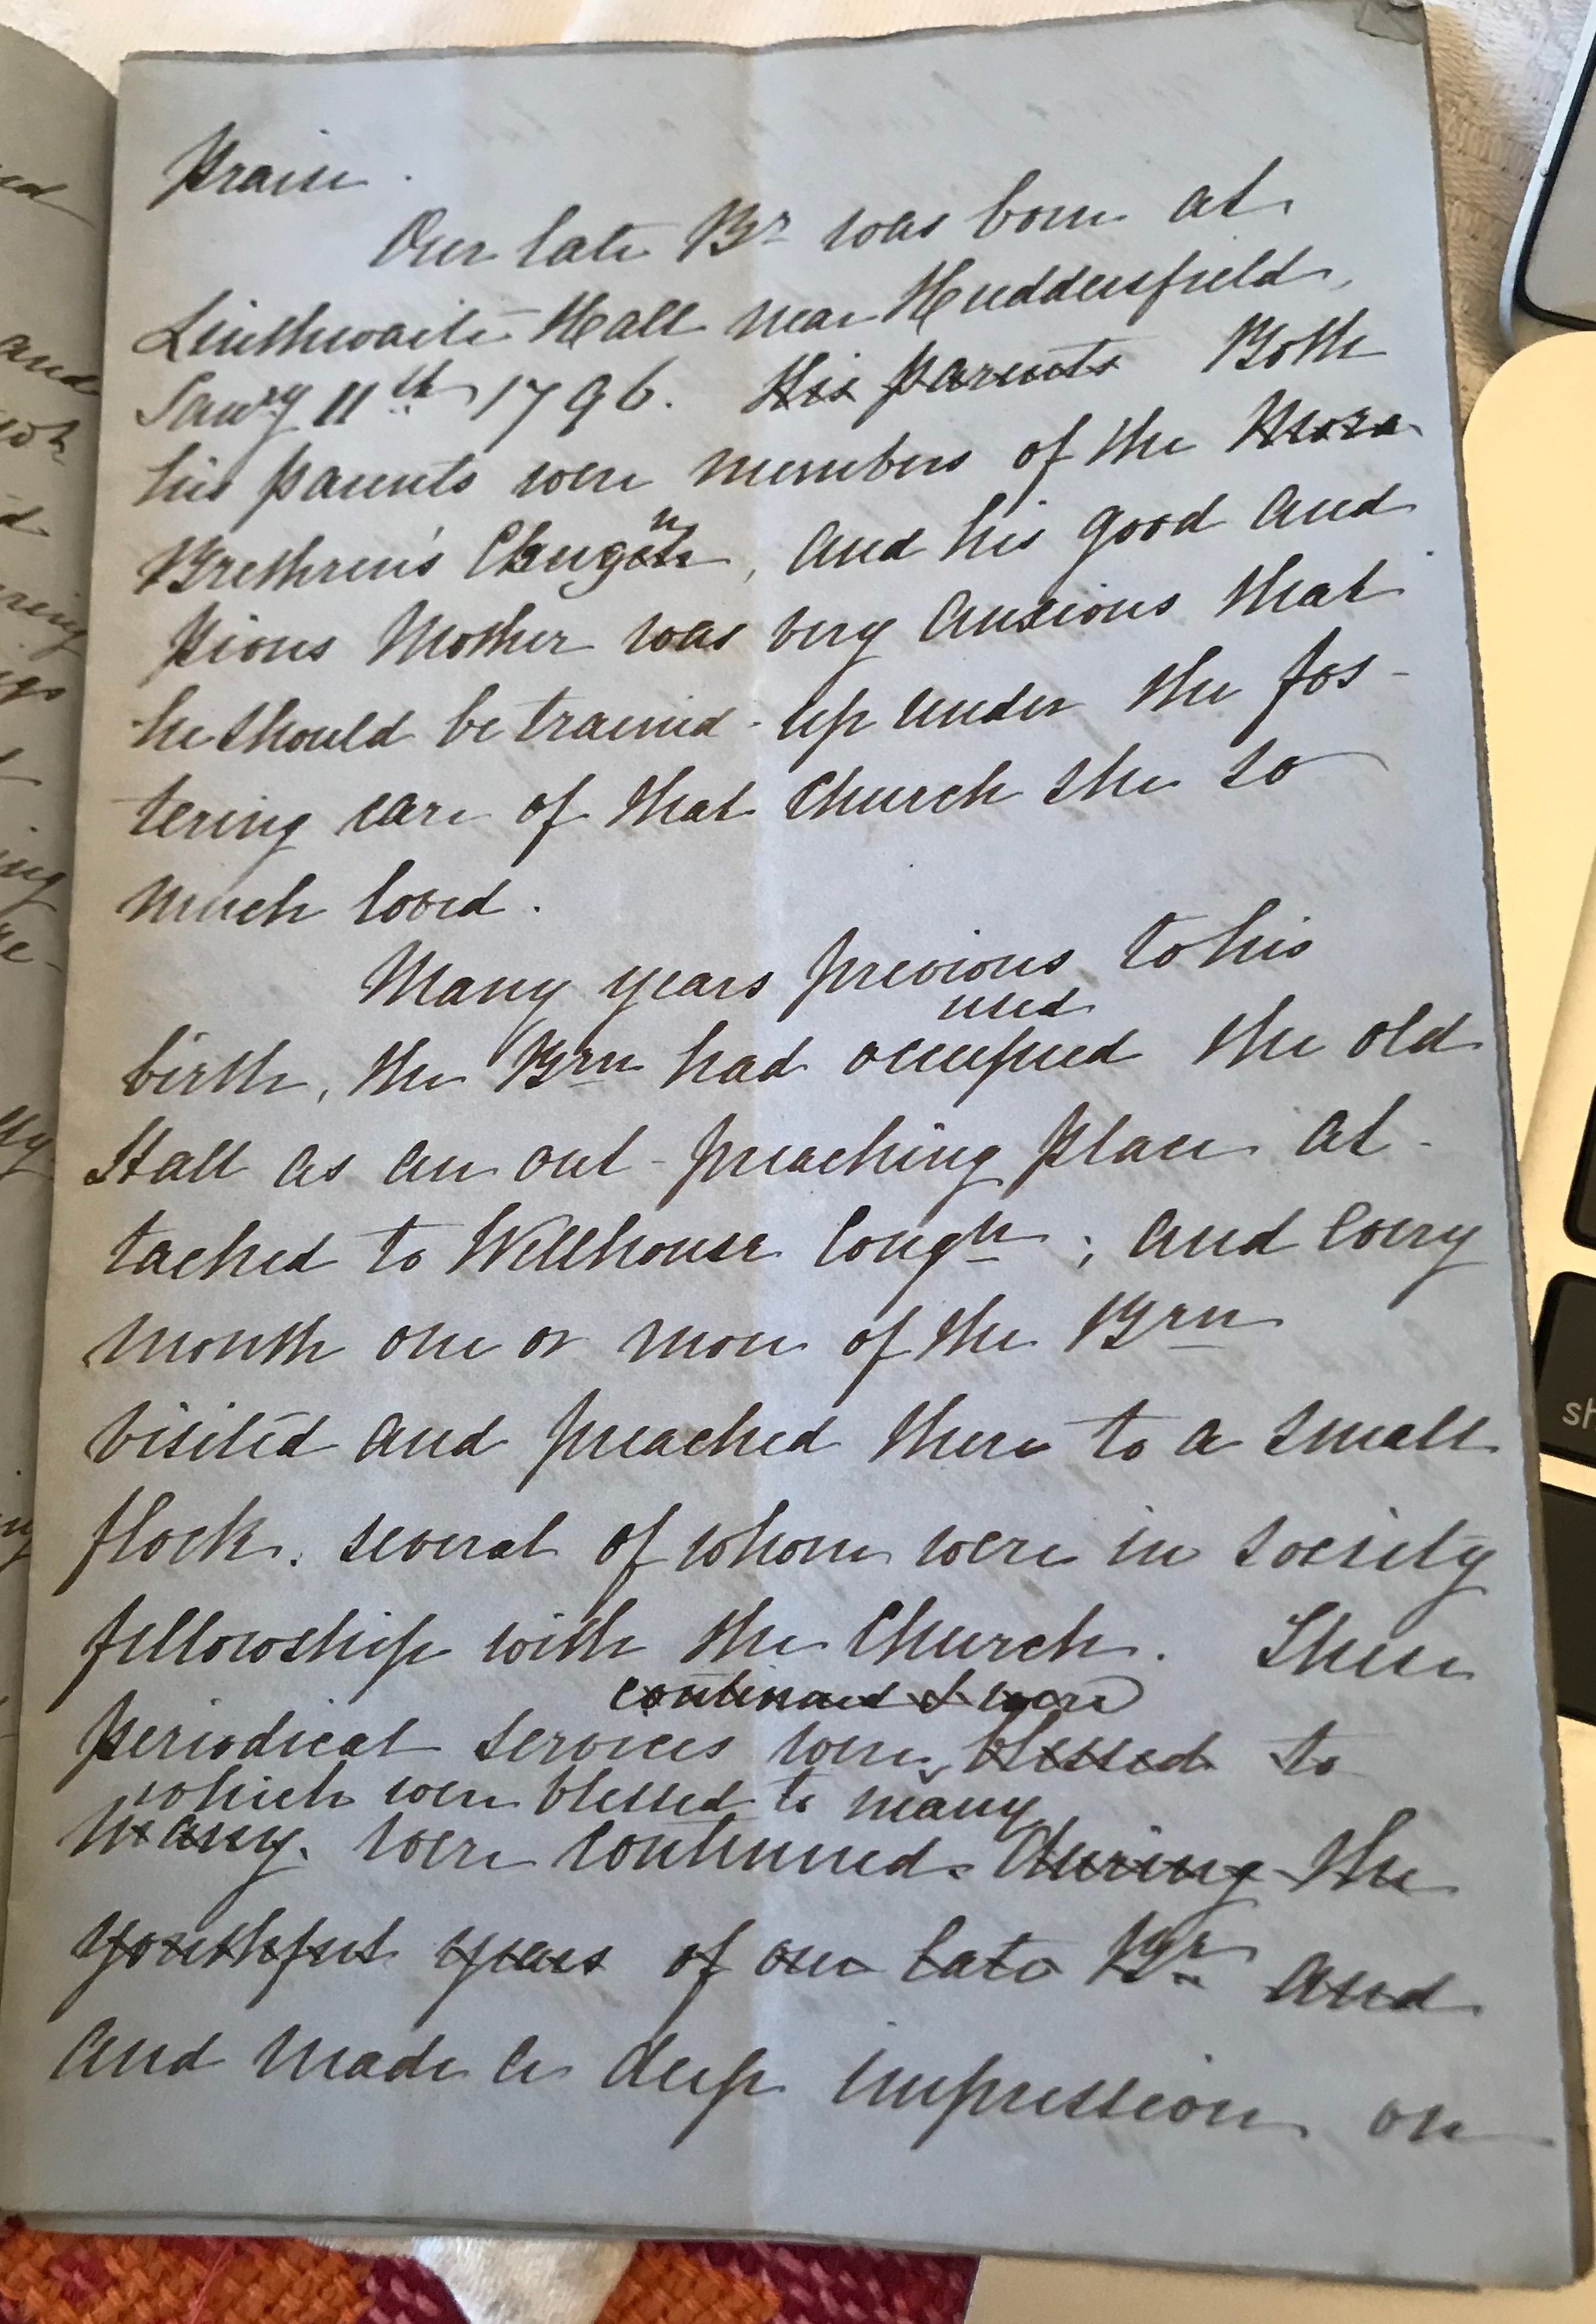 Praise.
Our late Br was born at
Linthwaite Hall near Huddersfield,
Janry 11th 1796. His parents Both
his parents were members of the Mora
Brethren's Congn, and his good and
pious Mother was very anxious that
he should be trained-up under the fos-
tering care of that Church she so
much loved.
Many years previous to his
used
birth, the Brn had occupied the old
Hall as an out-preaching place at-
tached to Wellhouse Congn; and every
month one or more of the Brn
visited and preached there to a small
flock. several of whom were in society
fellowship with the Church. These
continued & were
periodical services were blessed to
which were blessed to many
many. were continued. during the
youthful years of our late Br and
and made a deep impression on
and
ing